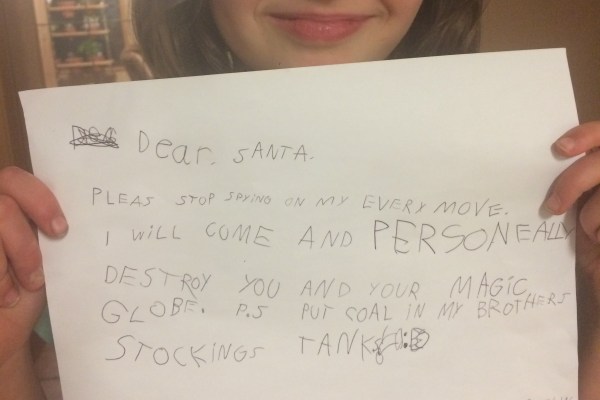 Dear. SANTA.
PLEAS STOP SPYING ON MY EVERY MOVE.
I WILL COME AND PERSONEALLY
DESTROY YOU AND YOUR MAGIC
GLOBE. P.S PUT COAL IN MY BROTHERS
STOCKINGS TANKS